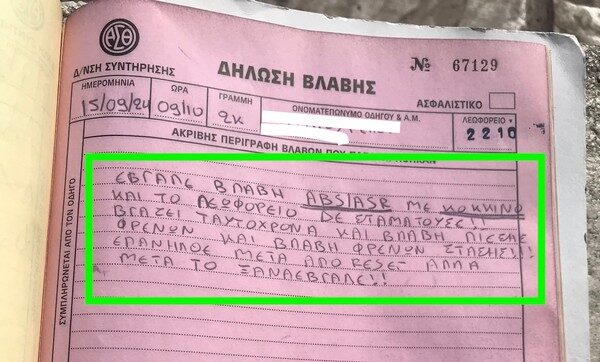 ΑΣΘ
Δ/ΝΣΗ ΣΥΝΤΗΡΗΣΗΣ
ΔΗΛΩΣΗ ΒΛΑΒΗΣ
№ 67129
ΗΜΕΡΟΜΗΝΙΑ
15/09/24
ΩΡΑ
09:10
ΓΡΑΜΜΗ
2Κ
ΟΝΟΜΑΤΕΠΩΝΥΜΟ ΟΔΗΓΟΥ & Α.Μ.
ΑΣΦΑΛΙΣΤΙΚΟ
ΛΕΩΦΟΡΕΙΟ
2216
ΑΚΡΙΒΗΣ ΠΕΡΙΓΡΑΦΗ ΒΛΑΒΩΝ ΠΟΥ
ΣΥΜΠΛΗΡΩΝΕΤΑΙ ΑΠΟ ΤΟΝ ΟΔΗΓΟ
ΕΒΓΑΛΕ ΒΛΑΒΗ ABS/ASR ΜΕ ΚΟΚΚΙΝΟ
ΚΑΙ ΤΟ ΛΕΩΦΟΡΕΙΟ ΔΕ ΣΤΑΜΑΤΟΥΣΕ!!
ΒΓΑΖΕΙ ΤΑΥΤΟΧΡΟΝΑ ΚΑΙ ΒΛΑΒΗ ΠΙΕΣΗΣ
ΦΡΕΝΩΝ ΚΑΙ ΒΛΑΒΗ ΦΡΕΝΩΝ ΣΤΑΣΗΣ!!
ΕΠΑΝΗΛΘΕ ΜΕΤΑ ΑΠΟ RESET ΑΛΛΑ
ΜΕΤΑ ΤΟ ΞΑΝΑΕΒΓΑΛΕ!!